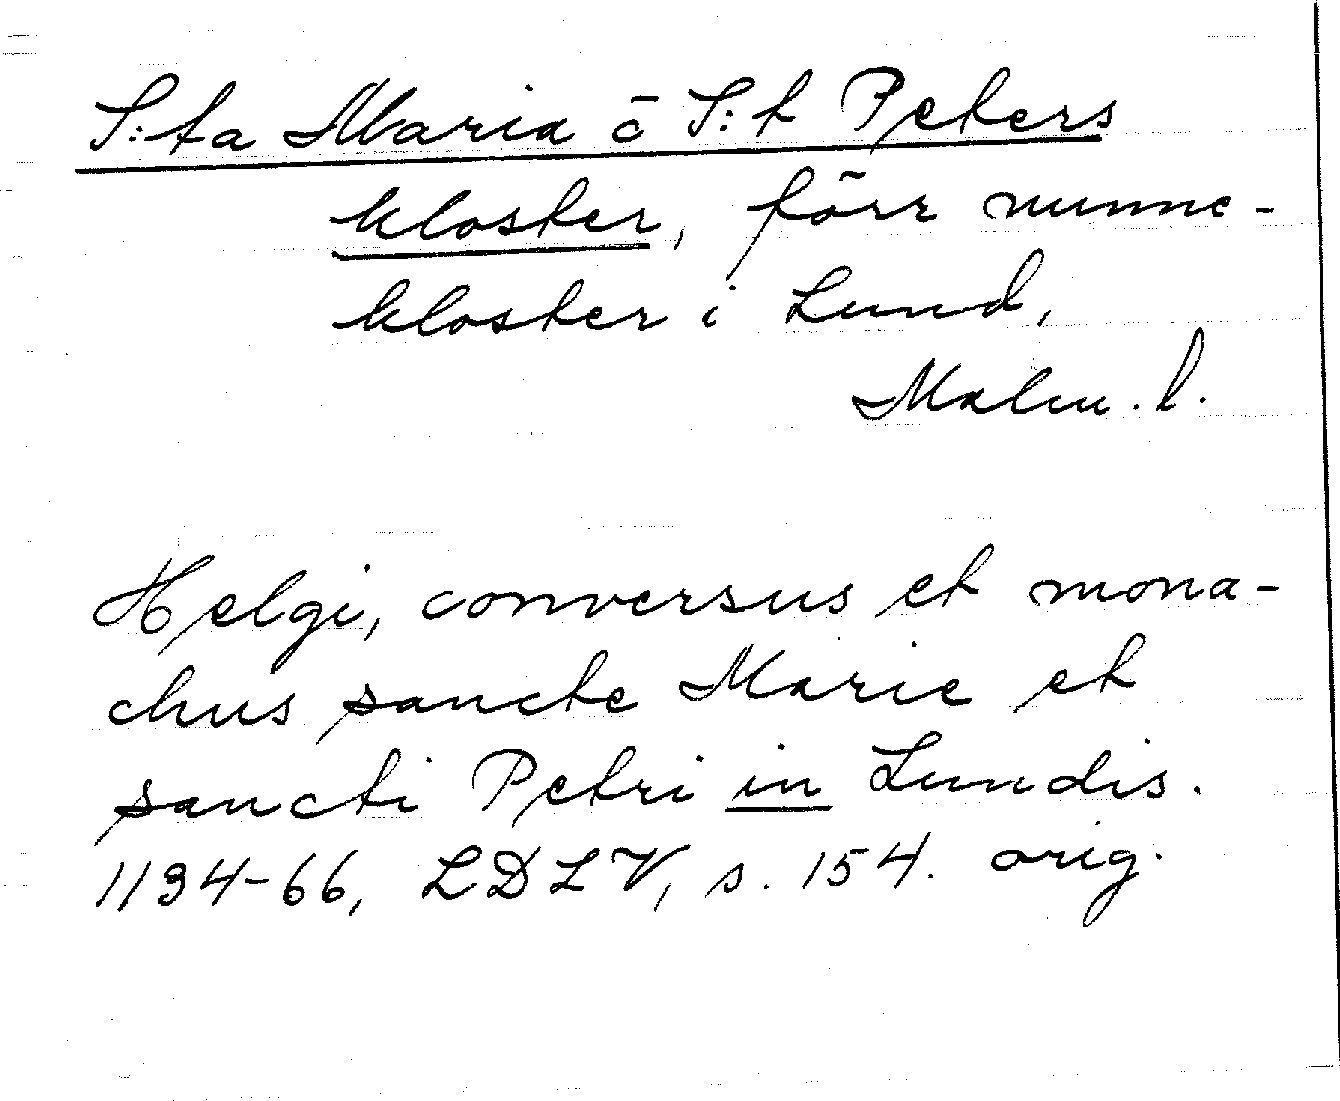 S:ta Maria o S:t Peters
kloster, förr nunne-
kloster i Lund,
Malm. l.
Helgi, conversus et mona-
chus sancte Marie et
sancti Petri in Lundis.
1194-66, LDLV, s. 154. orig.